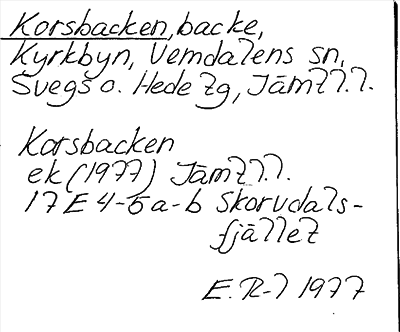 Korsbacken, backe,
Kyrkbyn, Vemdalens sn,
Svegs o. Hede tg, Jämtl.l.
Korsbacken
ek (1977) Jämtl.l.
17 E 4-5 a-b Skorvdals-
fjället
E. R-l 1977